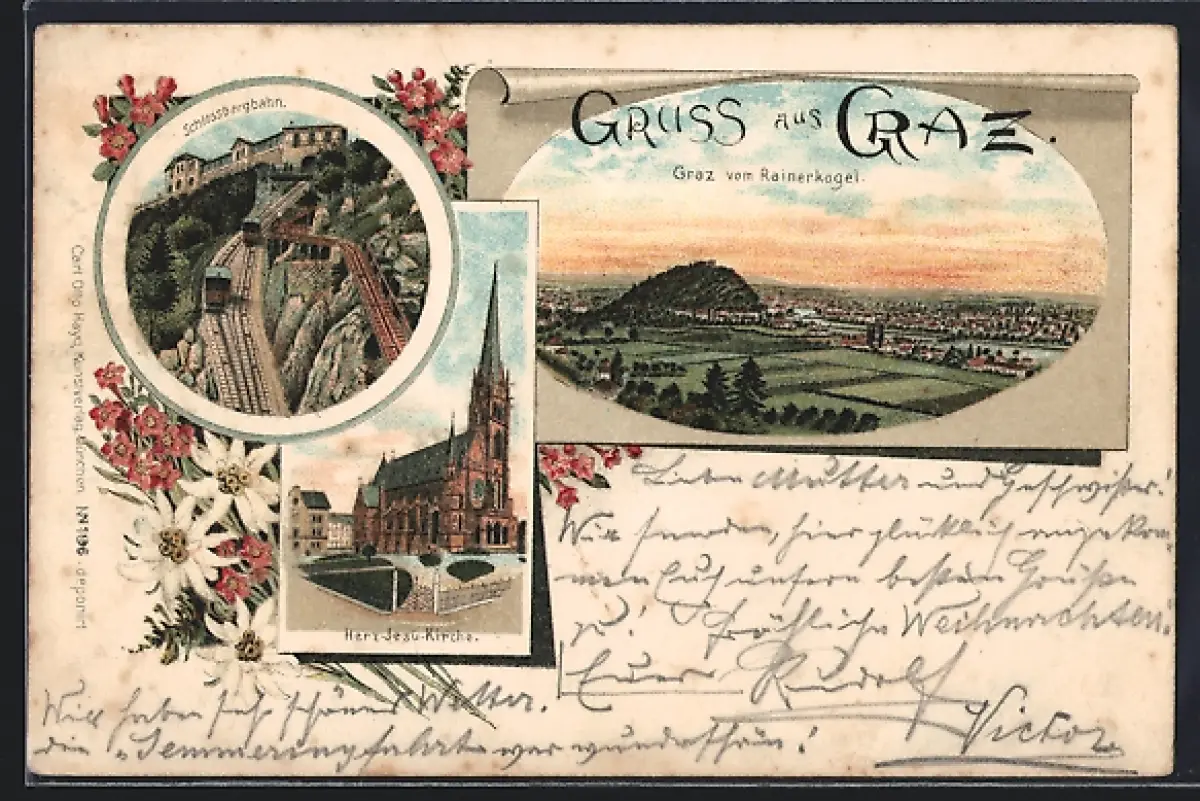 GRUSS AUS GRAZ.
Graz vom Rainerkogel.
Schlossbergbahn.
Herz-Jesu-Kirche.
Carl Otto Hayd, Kunstverlag, München № 1196. deponirt
Liebe Mutter und Geschwister!
Wir senden, hier glücklich angekom-
men Euch unsern besten Grüße
u. Fröhliche Weihnachten!
Euer Rudolf
Victor
Wir haben sehr schönes Wetter.
die „Semmeringfahrt war wunderschön!